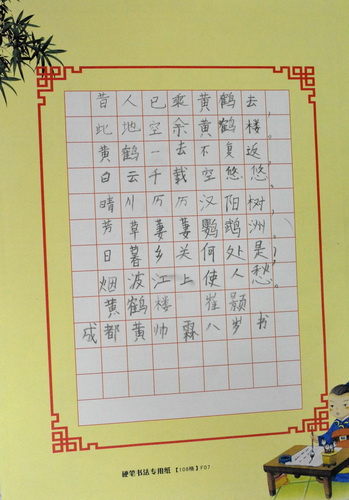 昔人已乘黄鹤去,
此地空余黄鹤楼。
黄鹤一去不复返,
白云千载空悠悠。
晴川历历汉阳树,
芳草萋萋鹦鹉洲。
日暮乡关何处是,
烟波江上使人愁。
黄鹤楼 崔颢
成都黄帅霖八岁书
硬笔书法专用纸【108格】P07